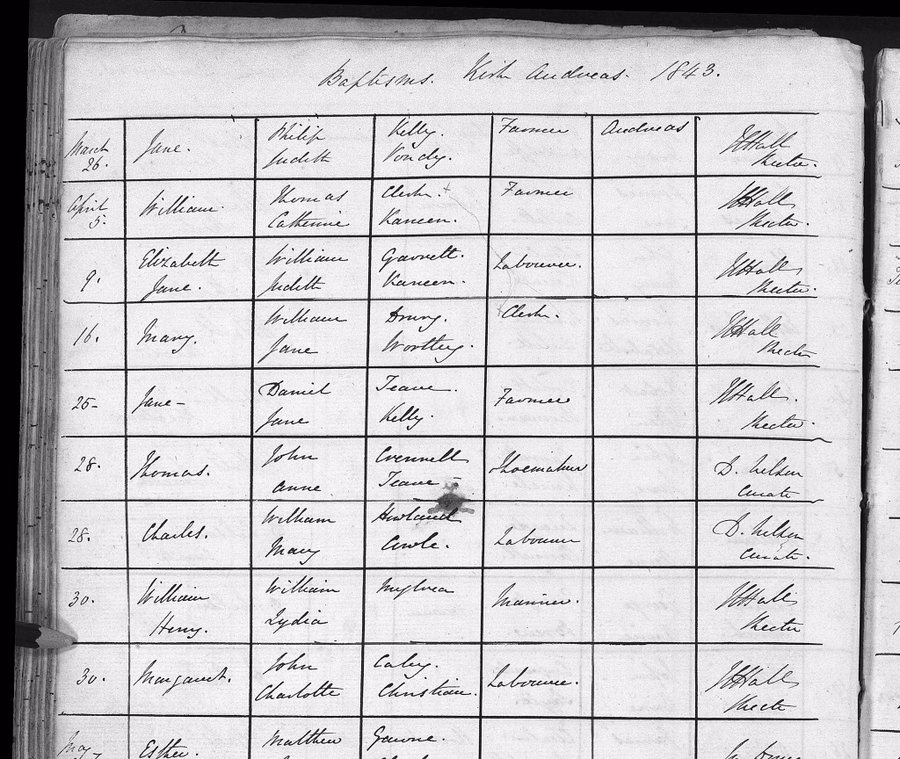 Baptisms. Kirk Andreas. 1843.
March 26. Jane. Philip Kelly. Farmer Andreas JHHall
Judith Vondy. Rector.
April 5. William. Thomas Clark + Farmer JHHall
Catherine Kaneen. Rector.
9. Elizabeth William Garrett. Labourer. JHHall
Jane. Judith Kaneen. Rector.
16. Mary. William Drury. Clerk. JHHall
Jane Rector
25- Jane- Daniel Teare. Farmer JHHall.
Jane Kelly. Rector.
28. Thomas. John Crennell Shoemaker D. Nelson
Anne Teare- Curate
28. Charles. William Howland Labourer D. Nelson
Mary Cowle. Curate.
30. William William Mylrea Mariner. JHHall
Henry. Lydia Rector
30. Margaret. John Caley. Labourer. JHHall
Charlotte Christian. Rector
May Esther. Matthew Gawne.